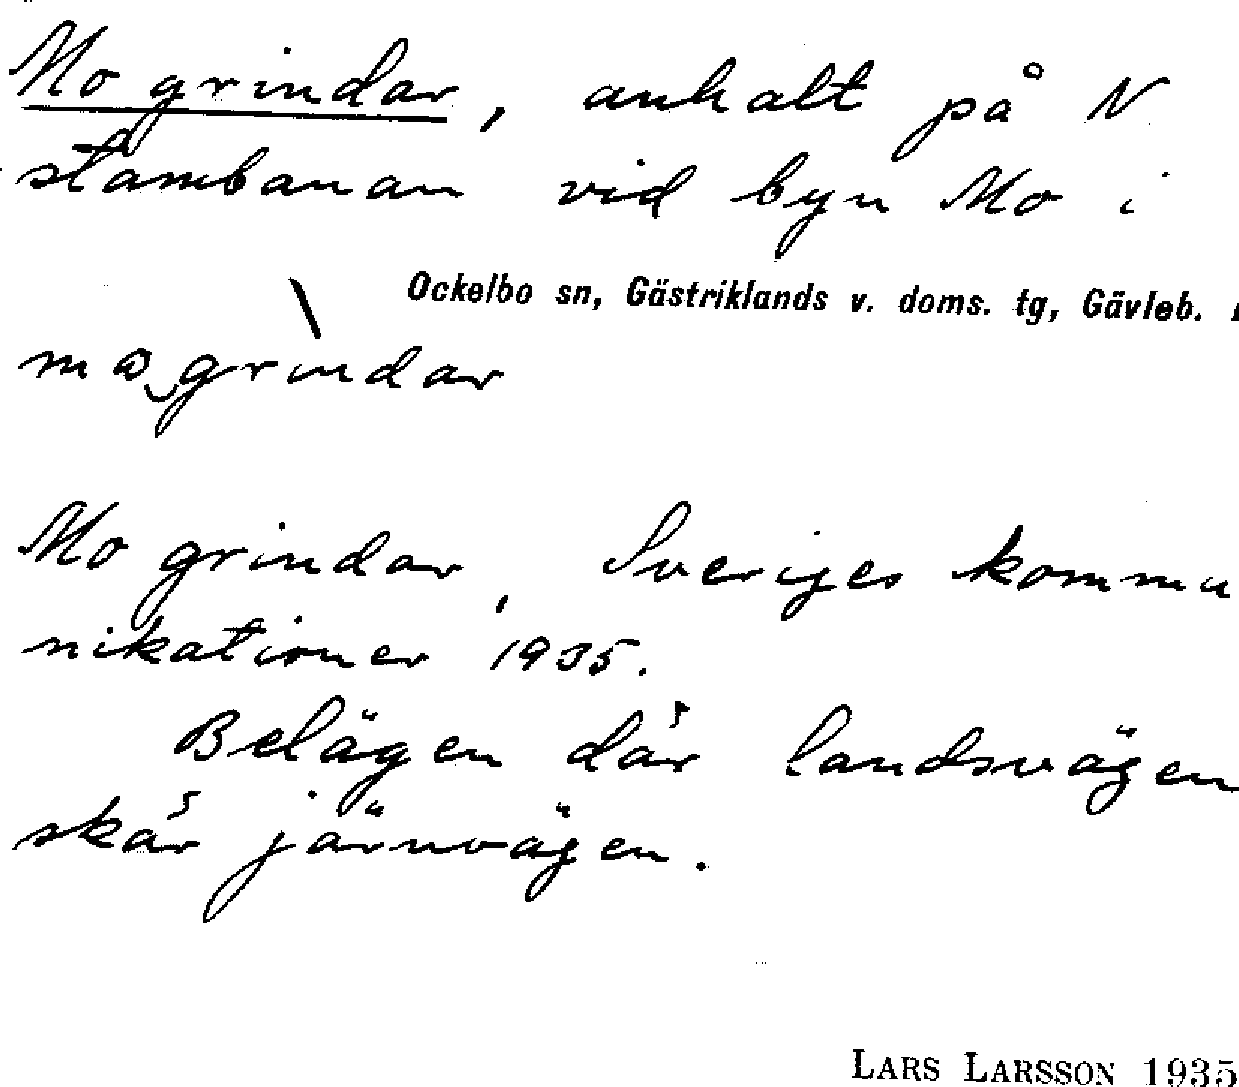 Mo grindar, anhalt på N.
stambanan vid byn Mo i
Ockelbo sn, Gästriklands v. doms. tg, Gävleb.
mogrindar
Mo grindar, Sveriges kommu
nikationer 1935.
Belägen där landsvägen
skär järnvägen.
LARS LARSSON 1935